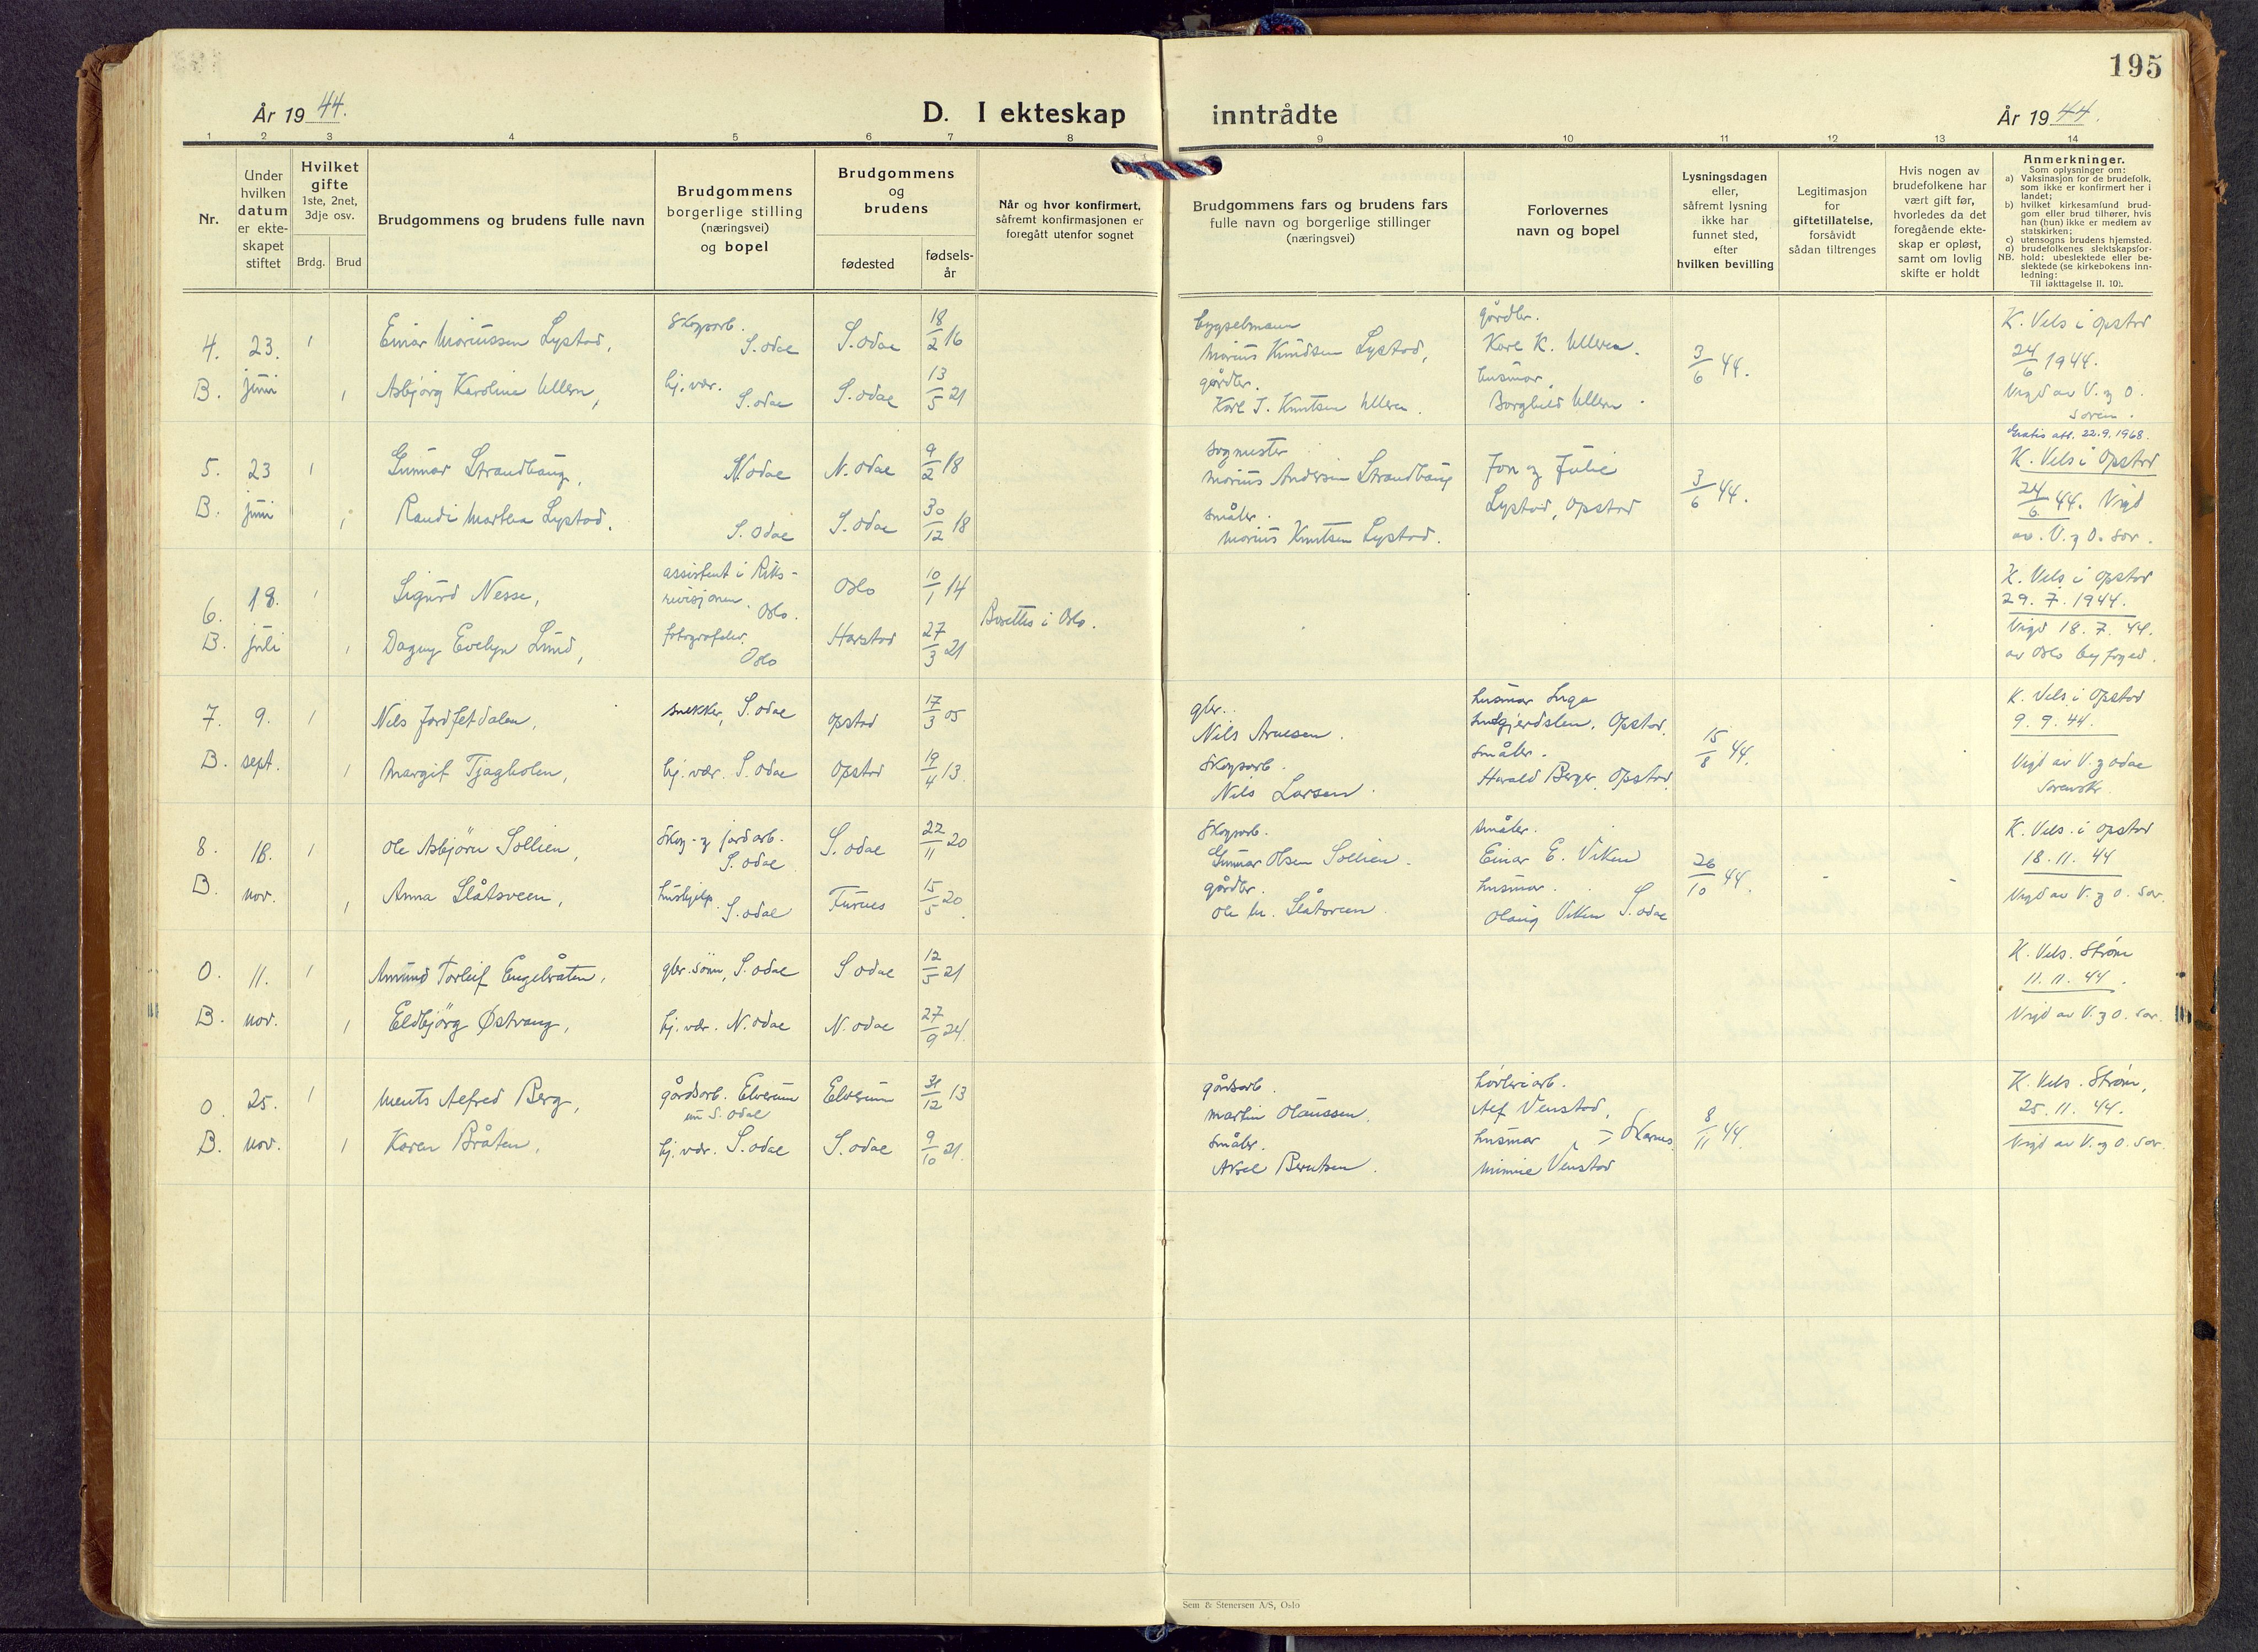 195
År 19 44.
D. I ekteskap inntrådte
År 19 44.
1 2 3 4 5 6 7 8 9 10 11 12 13 14
Nr.
Under hvilken datum er ekte-skapet stiftet
Hvilket gifte 1ste, 2net, 3dje osv.
Brdg. Brud
Brudgommens og brudens fulle navn
Brudgommens borgerlige stilling (næringsvei) og bopel
Brudgommens og brudens
fødested
fødsels-år
Når og hvor konfirmert, såfremt konfirmasjonen er foregått utenfor sognet
Brudgommens fars og brudens fars fulle navn og borgerlige stillinger (næringsvei)
Forlovernes navn og bopel
Lysningsdagen eller, såfremt lysning ikke har funnet sted, efter hvilken bevilling
Legitimasjon for giftetillatelse, forsåvidt sådan tiltrenges
Hvis nogen av brudefolkene har vært gift før, hvorledes da det foregående ekte-skap er opløst, samt om lovlig skifte er holdt
Anmerkninger.
Som oplysninger om:
a) Vaksinasjon for de brudefolk, som ikke er konfirmert her i landet;
b) hvilket kirkesamfund brud-gom eller brud tilhører, hvis han (hun) ikke er medlem av statskirken;
c) utensogns brudens hjemsted.
d) brudefolkenes slektskapsfor-
NB. hold: ubeslektede eller be-slektede (se kirkebokens inn-ledning:
Til iakttagelse II. 10).
4. 23. 1 Einar Mariussen Lystad, skogsarb. S. odal S. odal 18/2 16
bygselmann Marius Knudsen Lystad, gårdbr. Karl K. Ulleren. 3/6 44.
K. Vels i Opstad 24/6 1944.
B. juni 1 Asbjørg Karoline Ullern, hj. vær. S. odal S. odal 13/5 21
gårdbr. Karl J. Knutsen Ulleren. husmor, Borghild Ullern.
Vigd av V. og O. soren.
Gratis att. 22.9.1968.
5. 23 1 Gunnar Strandbaug, N. odal N. odal 9/2 18
sagmester Marius Andersen Strandbaug Jon og Julie 3/6 44.
K. Vels i Opstad
B. juni 1 Randi Martha Lystad. S. odal S. odal 30/12 18
småbr. Marius Knutsen Lystad. Lystad, Opstad
24/6 44. Vigd av. V. og O. sor.
6. 18. 1 Sigurd Nesse, assistent i Riks-revisjonen. Oslo. Oslo 10/1 14
Bosettes i Oslo.
K. Vels i Opstad 29. 7. 1944.
B. juli 1 Dagny Evelyn Lund, Oslo Harstad 27/3 21
Vigd 18. 7. 44. av Oslo byfoged.
7. 9. 1 Nils Jordfetdalen, snekker, S. odal Opstad 17/3 05
gbr. Nils Arnesen. husmor Inga Opstad. 15/8 44.
K. Vels i Opstad 9. 9. 44.
B. sept. 1 Margit Tjagholen, hj. vær. S. odal Opstad 19/4 13.
skogsarb. Nils Larsen. småbr. Harald Berger, Opstad.
Vigd av V. og odal sorenskr.
8. 18. 1 Ole Asbjørn Sollien, skog- og jordarb. S. odal S. odal 22/11 20
skogsarb. Gunnar Olsen Sollien. småbr. Einar E. Viken 26/10 44.
K. Vels. i Opstad 18. 11. 44
B. nov. 1 Anna Slåtsveen, hushjelp. S. odal Furnes 15/5 20
gårdbr. Ole M. Slåtsveen. husmor. Olaug Viken S. odal
Vigd av V. og O. sor.
O. 11. 1 Amund Torleif Engelråten, gbr. sønn, S. odal S. odal 12/5 21
K. Vels. Strøm 11. 11. 44.
B. nov. 1 Eldbjørg Østvang, hj. vær. N. odal N. odal 27/9 24.
Vigd av V. og O. sor.
O. 25. 1 Ments Alfred Berg, gårdsarb. Elverum nu S. odal Elverum 31/12 13
gårdsarb. Martin Olaussen, Alf Venstad, 8/11 44.
K. Vels. Strøm, 25. 11. 44.
B. nov. 1 Karen Bråten, hj. vær. S. odal S. odal 9/10 21.
småbr. Aksel Berntsen. husmor Minnie Venstad Skarnes
Vigd av V. og O. sor.
Sem & Stenersen A/S, Oslo